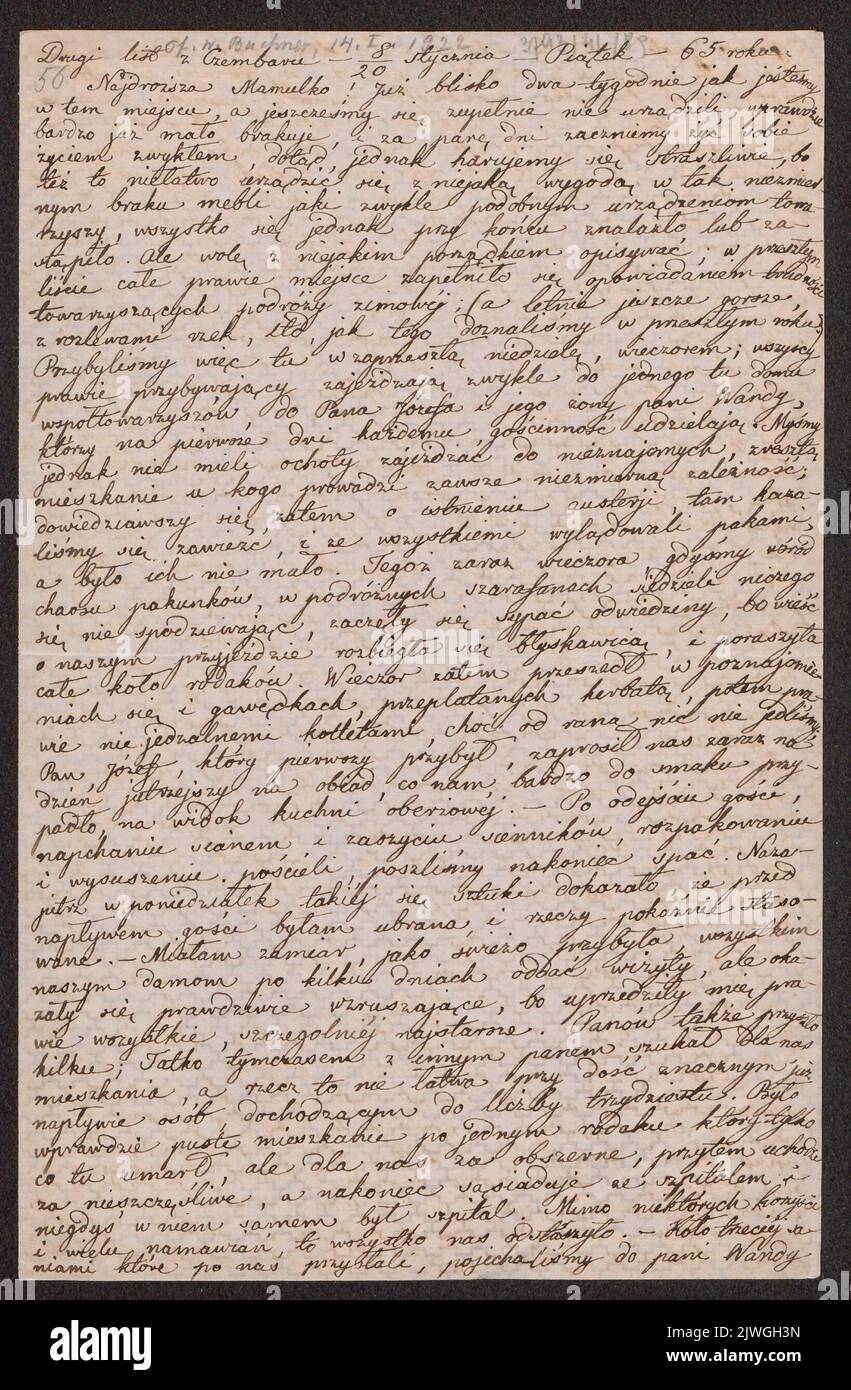 of. W. Buchner, 14. I. 1922
Drugi list z Czembaru – 8/20 stycznia – Piątek – 65 roku.
56
Najdroższa Mamulko! Już blisko dwa tygodnie jak jesteśmy
w tem miejscu, a jeszcześmy się zupełnie nie urządzili, wprawdzie
bardzo już mało brakuje, i za parę dni zaczniemy żyć sobie
życiem zwykłem, dotąd jednak harujemy się straszliwie, bo
też to niełatwo urządzić się z niejaką wygodą w tak niezmier
nym braku mebli jaki zwykle podobnym urządzeniom towa-
rzyszy, wszystko się jednak przy końcu znalazło lub za-
stąpiło. Ale wolę z niejakim porządkiem opisywać; w przeszłym
liście całe prawie miejsce zapełniło się opowiadaniem trudności
towarzyszących podróży zimowej; (a letnia jeszcze gorsza,
z rozlewami rzek, itd, jak tego doznaliśmy w przeszłym roku)
Przybyliśmy więc tu w zaprzeszłą niedzielę, wieczorem; wszyscy
prawie przybywający zajeżdżają zwykle do jednego tu domu
współtowarzyszów, do Pana Józefa i jego żony pani Wandy,
którzy na pierwsze dni każdemu gościnność udzielają. Myśmy
jednak nie mieli ochoty zajeżdżać do nieznajomych, zresztą
mieszkanie u kogo prowadzi zawsze niezmierną zależność;
dowiedziawszy się zatem o istnieniu austerji, tam kaza-
liśmy się zawieźć, i ze wszystkiemi wylądowali pakami,
a było ich nie mało. Tegoż zaraz wieczora gdyśmy wśród
chaosu pakunków, w podróżnych szarafanach siedzieli niczego
się nie spodziewając, zaczęły się sypać odwiedziny, bo wieść
o naszym przyjeździe rozbiegła się błyskawicą, i poraszyła
całe koło rodaków. Wieczór zatem przeszedł w poznajomie
niach się i gawędkach, przeplatanych herbatą, potem pra-
wie niejedzalnemi kotletami, choć od rana nic nie jedliśmy.
Pan Józef, który pierwszy przybył, zaprosił nas zaraz na
dzień jutrzejszy na obiad, co nam bardzo do smaku przy-
padło, na widok kuchni oberżowej. – Po odejściu gości,
napchaniu sianem i zaszyciu sienników, rozpakowaniu
i wysuszeniu pościeli, poszliśmy nakoniec spać. Naza-
jutrz w poniedziałek takiej się sztuki dokazało że przed
napływem gości byłam ubrana i rzeczy pokaźnie staso-
wane. – Miałam zamiar, jako świeżo przybyła, wszystkim
naszym damom po kilku dniach oddać wizyty, ale oka-
zały się prawdziwie wzruszające, bo uprzedziły mię pra-
wie wszystkie, szczególniej najstarsze. Panów także przyszło
kilku; Tatko tymczasem z innym panem szukał dla nas
mieszkania, a rzecz to nie łatwa przy dość znacznym już
napływie osób dochodzącym do liczby trzydziestu. Było
wprawdzie puste mieszkanie po jednym rodaku który tylko
co tu umarł, ale dla nas za obszerne, przytem uchodzi
za nieszczęśliwe, a nakoniec sąsiaduje ze szpitalem i
niegdyś w niem samem był szpital. Mimo niektórych korzyści
i wielu namawiań, to wszystko nas odstaszyło. – Koło trzeciej sa
niami które po nas przysłali, pojechaliśmy do pani Wandy